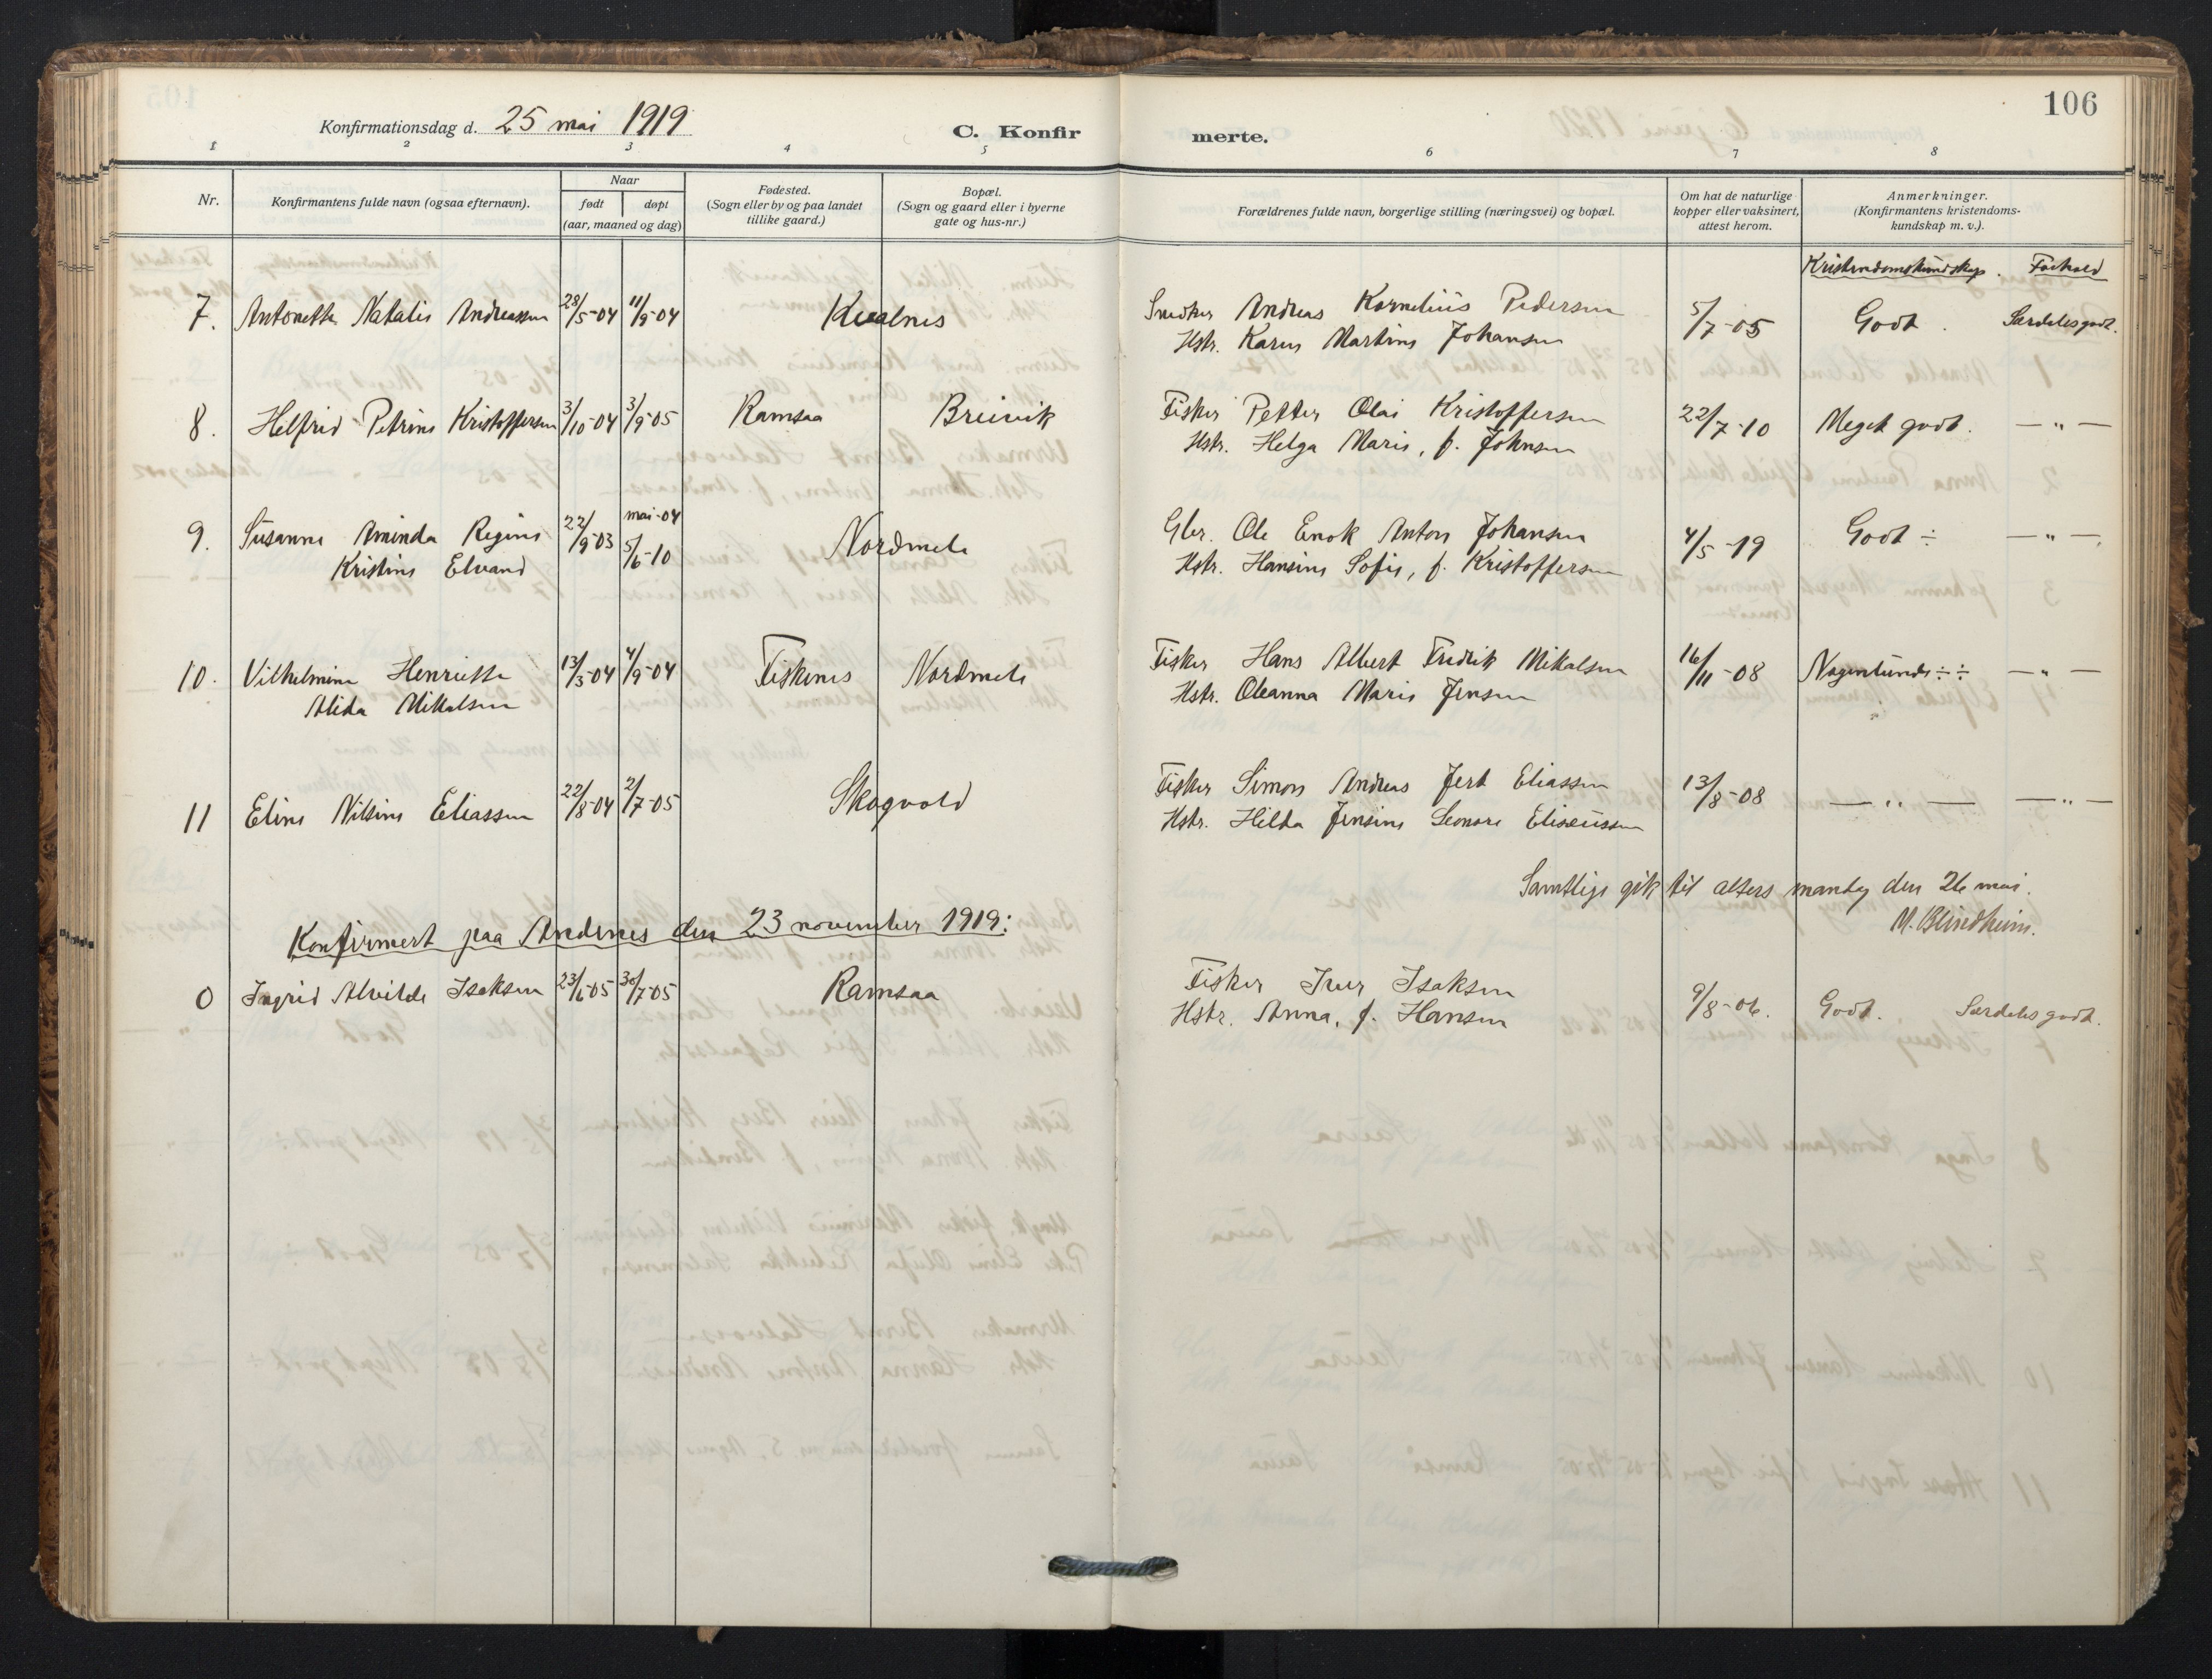 106
Konfirmationsdag d. 25 mai 1919
C. Konfirmerte.
1 2 3 4 5 6 7 8
Nr.
Konfirmantens fulde navn (ogsaa efternavn).
Naar
født døpt
(aar, maaned og dag)
Fødested.
(Sogn eller by og paa landet
tillike gaard.)
Bopæl.
(Sogn og gaard eller i byerne
gate og hus-nr.)
Forældrenes fulde navn, borgerlige stilling (næringsvei) og bopæl.
Om hat de naturlige
kopper eller vaksinert,
attest herom.
Anmerkninger.
(Konfirmantens kristendoms-
kundskap m. v.).
Kristendomskundskap. Forhold
7. Antonette Natalie Andreassen 28/5-04 11/9-04 Kvalnes Snedker Andreas Kornelius Pedersen 5/7-05 Godt. Særdeles godt.
Hstr. Karen Martine Johansen
8. Helfrid Petrine Kristoffersen 3/10-04 3/9-05 Ramsaa Breivik Fisker Petter Olai Kristoffersen 22/7-10 Meget godt. — " —
Hstr. Helga Marie, f. Johnsen
9. Susanne Aminda Regine 22/9-03 mai-04 Nordmela Gbr. Ole Enok Anton Johansen 4/5-19 Godt ÷ — " —
Kristine Elvand 5/6-10 Hstr. Hansine Sofie, f. Kristoffersen
10. Vilhelmine Henriette 13/3-04 4/9-04 Fiskenes Nordmela Fisker Hans Albert Fredrik Mikalsen 16/11-08 Nogenlunde ÷ ÷ — " —
Alida Mikalsen Hstr. Oleanna Marie Jensen
11 Eline Nilsine Eliassen 22/8-04 2/7-05 Skogvold Fisker Simon Andreas Jert Eliassen 13/8-08 — " — — " —
Hstr. Hilda Jensine Leonore Elisæussen
Samtlige gik til alters mandag den 26 mai.
M. Blindheim.
Konfirmert paa Andenes den 23 november 1919:
0 Ingrid Alvilde Isaksen 23/6-05 30/7-05 Ramsaa Fisker Iver Isaksen 9/8-06. Godt. Særdeles godt.
Hstr. Anna, f. Hansen